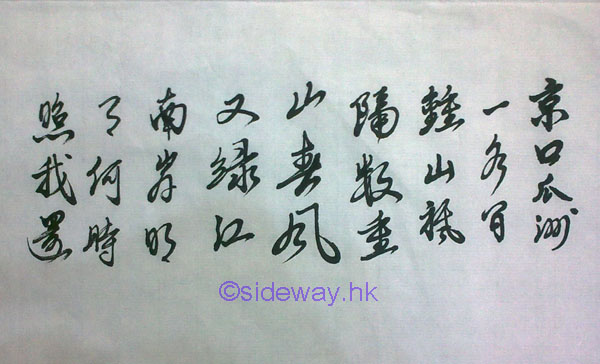 京口瓜洲
一水間
鍾山祇
隔數重
山春風
又綠江
南岸明
月何時
照我還
©sideway.hk